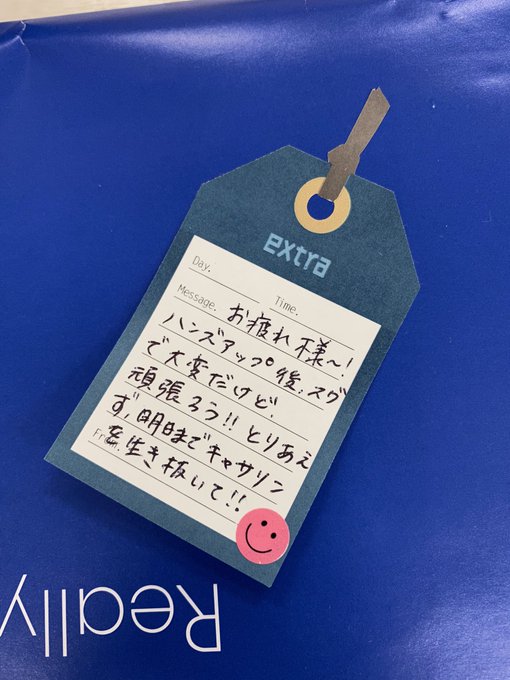 extra
Day.
Time.
Message.
お疲れ様〜!
ハンズアップ後、スグ
で大変だけど、
頑張ろう!! とりあえ
ず、明日までキャサリン
を生き抜いて!!
Really